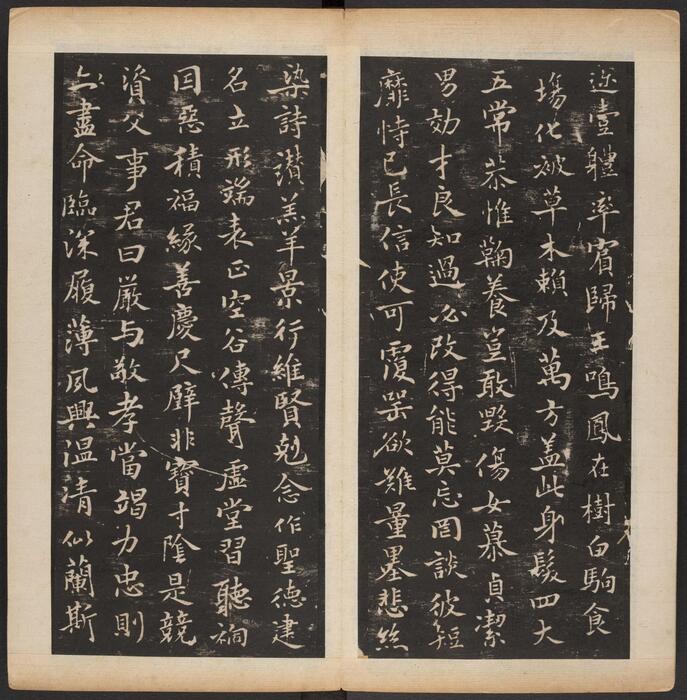 迩壹體率賓歸王鳴鳳在樹白駒食
塲化被草木賴及萬方盖此身髮四大
五常恭惟鞠養豈敢毀傷女慕貞潔
男効才良知過必改得能莫忘罔談彼短
靡恃己長信使可覆器欲難量墨悲絲
染詩讚羔羊景行維賢剋念作聖德建
名立形端表正空谷傳聲虛堂習聽禍
囙惡積福緣善慶尺璧非寶寸陰是競
資父事君曰嚴与敬孝當竭力忠則
盡命臨深履薄夙興溫清似蘭斯